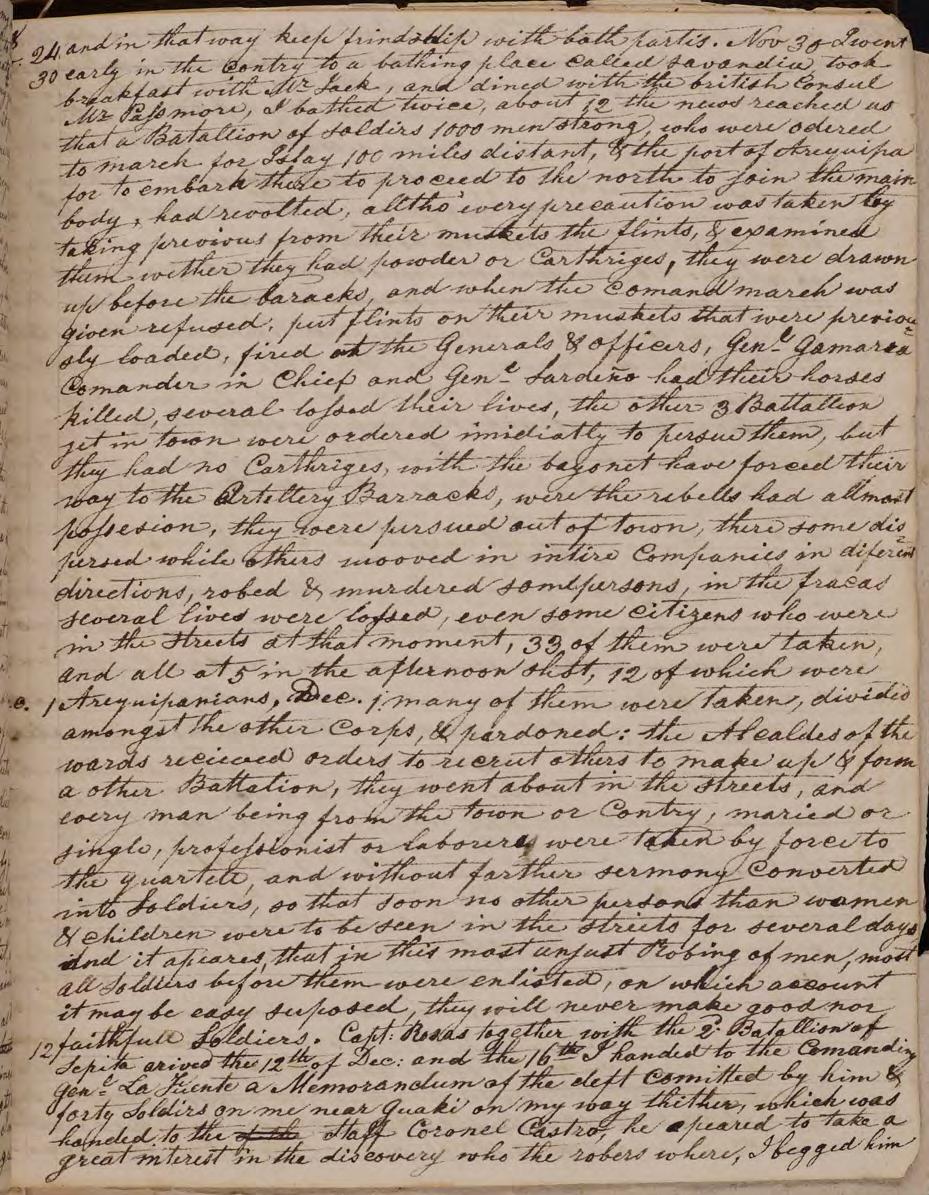 24 and in that way keep frindship with both partis. Nov 30 I went
30 early in the Contry to a bathing place called Savandia took
breakfast with Mr Jack, and dined with the british Consul
Mr Passmore, I bathed twice, about 12 the news reached us
that a Batallion of Soldirs 1000 men strong, who were odered
to march for Islay 100 miles distant, & the port of Arequipa
for to embark there to proceed to the north to join the main
body, had revolted, altho every precaution was taken by
taking previous from their muskets the flints, & examined
them wether they had powder or Carthriges, they were drawn
up before the baracks, and when the Comand march was
given refused, put flints on their muskets that were previou=
sly loaded, fired at the Generals & officers, Genl Gamarra
Comander in Chief and Genl Sardeño had their horses
killed, several lossed their lives, the other 3 Battallion
jet in town were ordered imidiatly to persue them, but
they had no Carthriges, with the bagonet have forced their
way to the Artellery Barracks, were the rebells had allmost
possesion, they were persued out of town, there some dis=
persed while others mooved in intire Companies in diferent
directions, robed & murdered some persons, in the fracas
several lives were lossed, even some citizens who were
in the streets at that moment, 33 of them were taken,
and all at 5 in the afternoon shot, 12 of which were
e. 1 Arequipanians, Dec. 1 many of them were taken, divided
amongst the other Corps, & pardoned: the Alcaldes of the
wards recieved orders to recrut others to make up & form
a other Battalion, they went about in the streets, and
every man being from the town or Contry, maried or
single, professionist or laborers were taken by force to
the quartele, and without farther sermony Converted
into Soldiers, so that soon no other persons than women
& children were to be seen in the streets for several days
and it apeares, that in this most unjust Robing of men, most
all Soldiers before them were enlisted, on which account
it may be easy suposed, they will never make good nor
12 faithfull Soldiers. Capt: Rosas together with the 2d Batallion of
Sepita arived the 12th of Dec: and the 16th I handed to the Comanding
Genl La Fuente a Memorandum of the deft Comitted by him &
forty Soldirs on me near Guaki on my way thither, which was
handed to the Staff Coronel Castro, he apeared to take a
great interest in the discovery who the robers where, I begged him